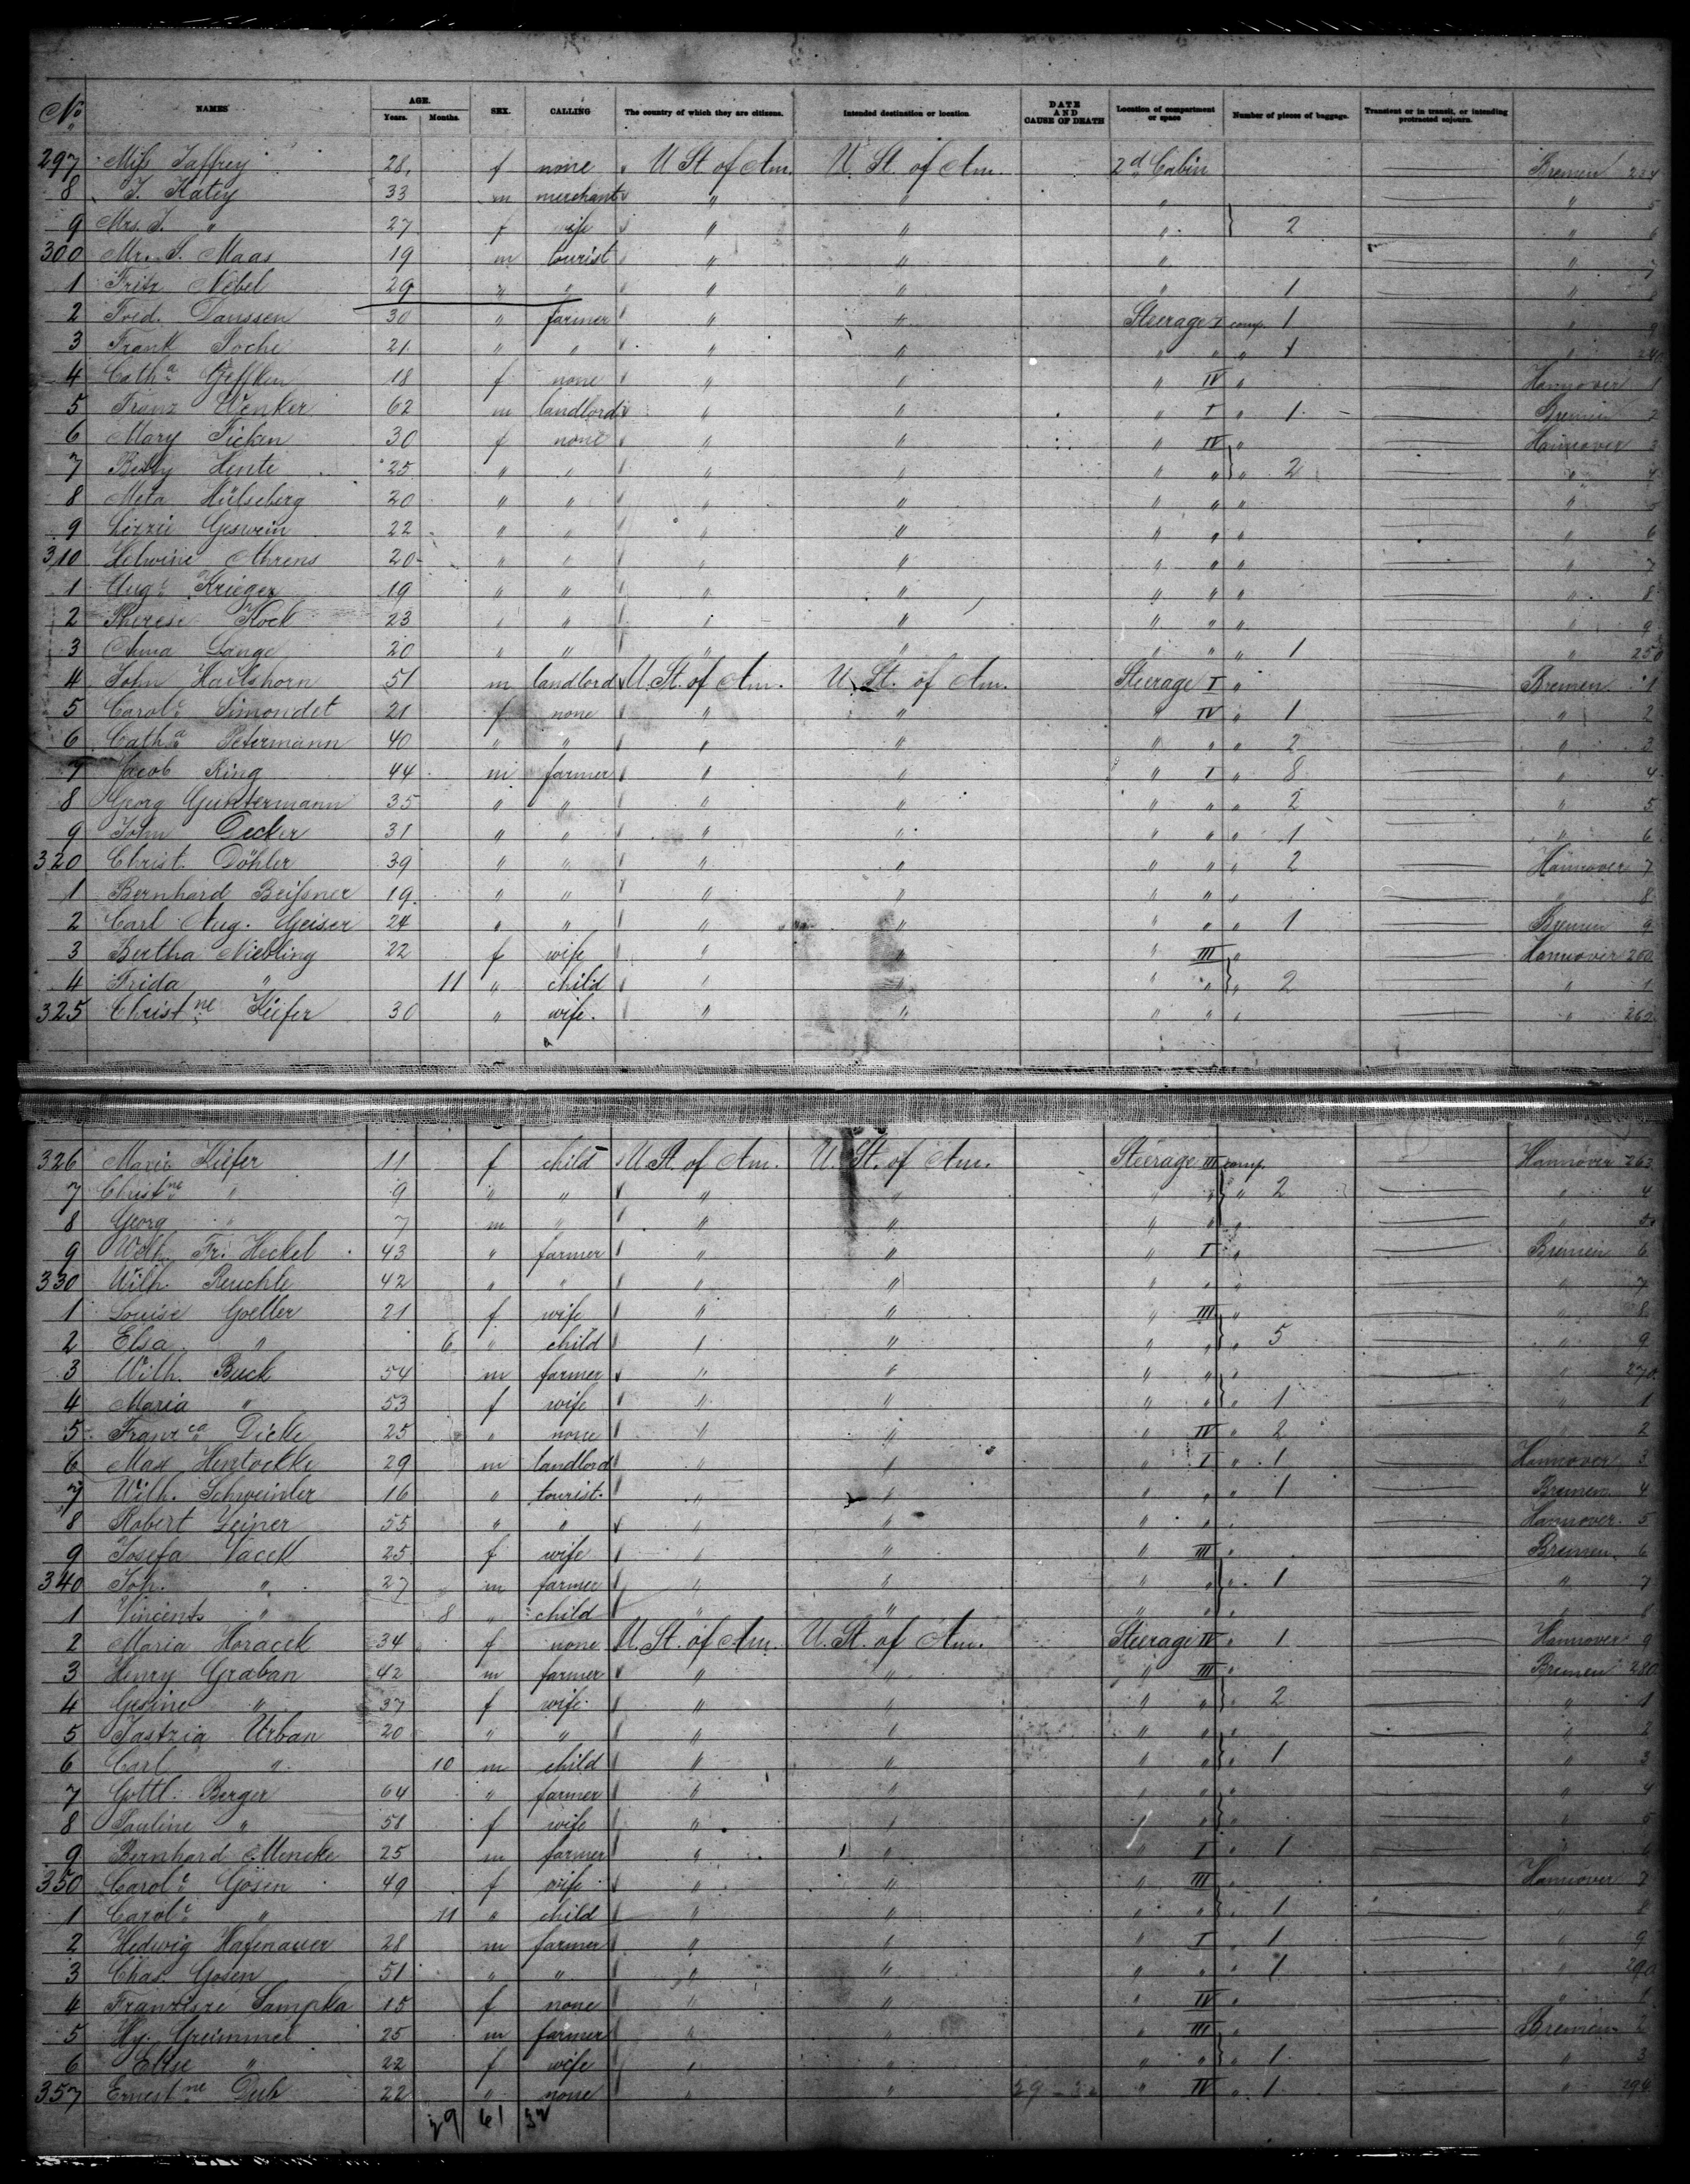 No NAMES AGE. Years. Months. SEX. CALLING The country of which they are citizens. Intended destination or location. DATE AND CAUSE OF DEATH Location of compartment or space Number of pieces of baggage. Transient or in transit, or intending protracted sojourn.
297 Miss Jaffrey 28 f none U St of Am. U. St. of Am. 2d Cabin Bremen 234
8 J. Katey 33 m merchant " " " " 5
9 Mrs. J. " 27 f wife " " " 2 " 6
300 Mr. S. Maas 19 m tourist " " " " 7
1 Fritz Nebel 29 " " " " " 1 " 8
2 Fred. Danssen 30 " farmer " " Steerage I comp. 1 " 9
3 Frank Poche 21 " " " " " " " 1 " 240
4 Catha Geffken 18 f none " " " IV " Hannover 1
5 Franz Wenker 62 m landlord " " " I " 1 Bremen 2
6 Mary Ficken 30 f none " " " IV " Hannover 3
7 Betty Hente 25 " " " " " " " 2 " 4
8 Meta Hülseberg 20 " " " " " " " " 5
9 Lizzie Geswein 22 " " " " " " " " 6
310 Helwine Ahrens 20 " " " " " " " " 7
1 Auge Krieger 19 " " " " " " " " 8
2 Therese Kock 23 " " " " " " " " 9
3 Anna Lange 20 " " " " " " " 1 " 250
4 John Hailshorn 51 m landlord U. St. of Am. U. St. of Am. Steerage I " Bremen 1
5 Carole Simondet 21 f none " " " IV " 1 " 2
6 Catha Petermann 40 " " " " " " " 2 " 3
7 Jacob King 44 m farmer " " " I " 8 " 4
8 Georg Guntermann 35 " " " " " " " 2 " 5
9 John Decker 31 " " " " " " " 1 " 6
320 Christ. Döhler 39 " " " " " " " 2 Hannover 7
1 Bernhard Beissner 19 " " " " " " " " 8
2 Carl Aug. Geiser 24 " " " " " " " 1 Bremen 9
3 Bertha Niebling 22 f wife " " " III " Hannover 260
4 Frida " 11 " child " " " " " 2 " 1
325 Christne Kiefer 30 " wife. " " " " " " 262
326 Marie Kiefer 11 f child U St. of Am. U. St. of Am. Steerage III comp. Hannover 263
7 Christne " 9 " " " " " " " 2 " 4
8 Georg " 7 m " " " " " " " 5
9 Wilh. Fr. Heckel 43 " farmer " " " I " Bremen 6
330 Wilh. Reuchle 42 " " " " " " " " 7
1 Louise Goeller 21 f wife " " " III " " 8
2 Elsa " 6 " child " " " " " 5 " 9
3 Wilh. Buck 54 m farmer " " " " " " 270
4 Maria " 53 f wife " " " " " 1 " 1
5 Franzca Dicke 25 " none " " " IV " 2 " 2
6 Max Hentockke 29 m landlord " " " I " 1 Hannover 3
7 Wilh. Schweinler 16 " tourist " " " " " 1 Bremen 4
8 Robert Zeiner 55 " " " " " " " Hannover 5
9 Josefa Vacek 25 f wife " " " III " Bremen 6
340 Joh. " 27 m farmer " " " " " 1 " 7
1 Vincents " 8 " child " " " " " " 8
2 Maria Horacek 34 f none U. St. of Am. U. St. of Am. Steerage IV " 1 Hannover 9
3 Henry Graban 42 m farmer " " " III " Bremen 280
4 Gesine " 37 f wife " " " " " 2 " 1
5 Jastzia Urban 20 " " " " " " " " 2
6 Carl " 10 m child " " " " " 1 " 3
7 Gottl. Berger 64 " farmer " " " " " " 4
8 Pauline " 58 f wife " " " " " " 5
9 Bernhard Mencke 25 m farmer " " " I " 1 " 6
350 Carole Gösen 49 f wife " " " III " Hannover 7
1 Carole " 11 " child " " " " " 1 " 8
2 Hedwig Hafenauer 28 m farmer " " " I " 1 " 9
3 Chas. Gosen 51 " " " " " " " 1 " 290
4 Franzisze Lampka 15 f none " " " IV " " 1
5 Hy. Greimmel 25 m farmer " " " III " Bremen 2
6 Elise " 22 f wife " " " " " 1 " 3
357 Ernestne Dub 22 " none " " " IV " 1 " 294
29 61 32